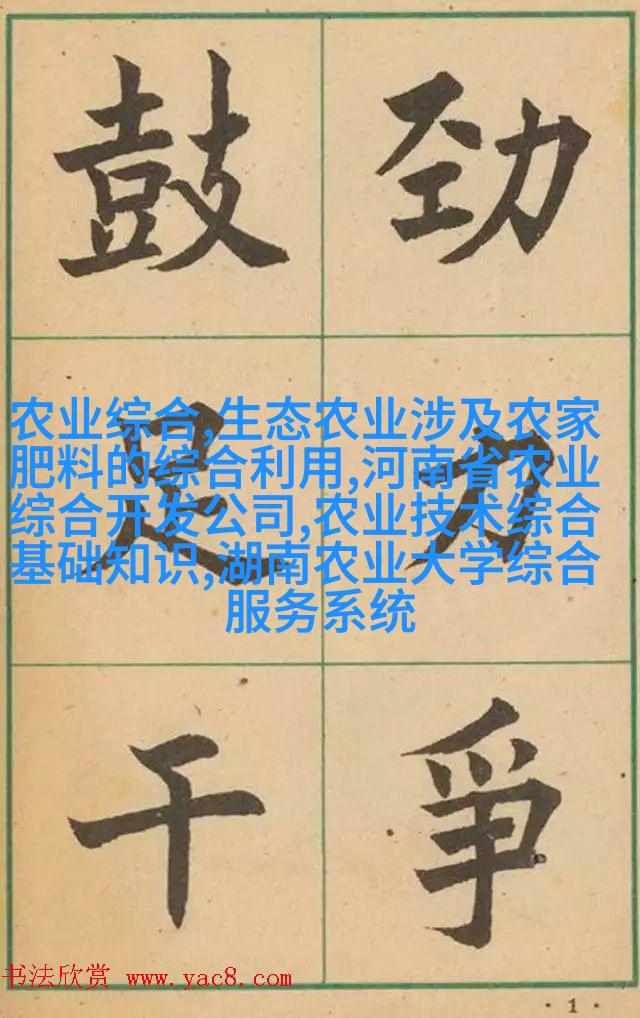 鼓足干
劲力爭
农业综合,生态农业涉及农家
肥料的综合利用,河南省农业
综合开发公司,农业技术综合
基础知识,湖南农业大学综合
服务系统
书法欣赏 www.yac8.com
· 1 ·